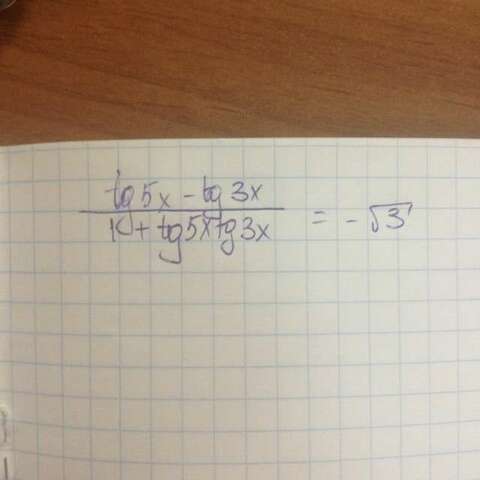 tg5x - tg3x
1 + tg5xtg3x = -√3